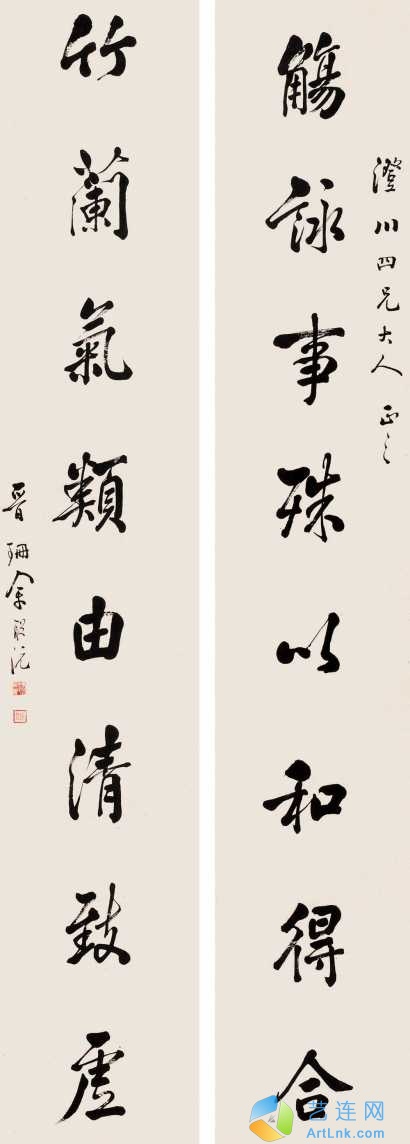 澄川四兄大人正之
觴詠事殊以和得合
竹蘭氣類由清致虛
晉珊余聯沅
艺连网
ArtLnk.com